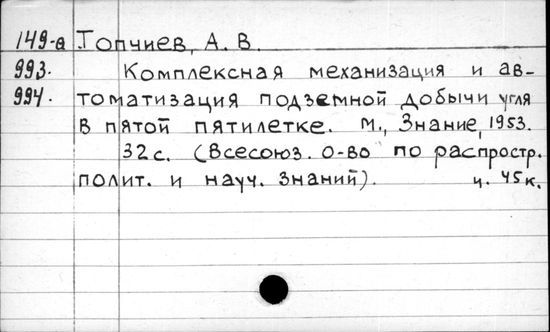 149-а Топчиев, А. В.
993. Комплексная механизация и ав-
994. томатизация подземной добычи угля
в пятой пятилетке. М., Знание, 1953.
32 с. (Всесоюз. о-во по распростр.
полит. и науч. знаний). ц. 45 к.